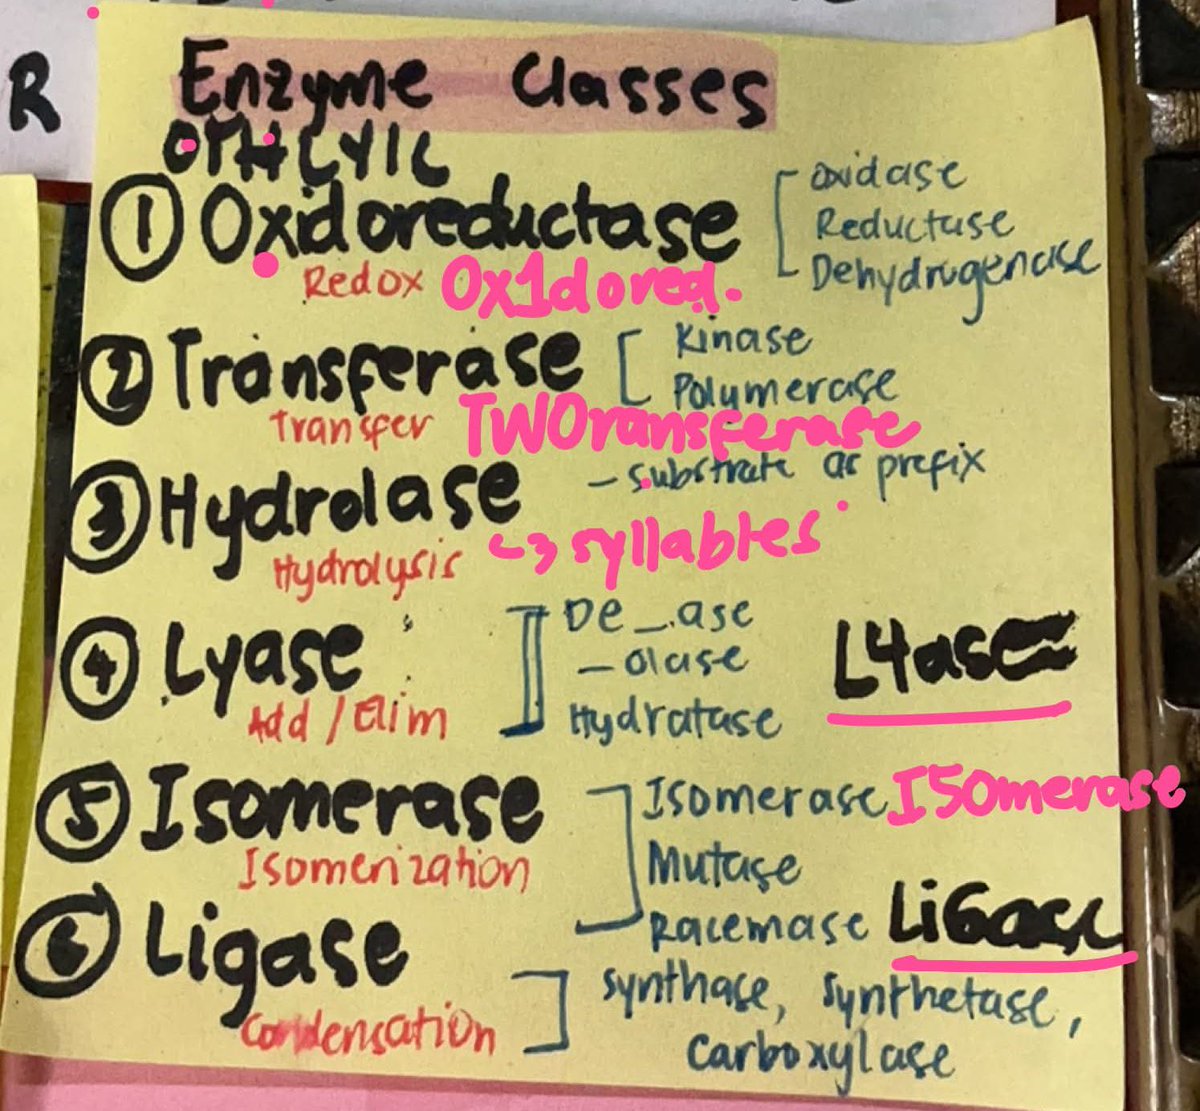 R
Enzyme Classes
OTHLYIL
① Oxidoreductase
Oxidase
Reductase
Dehydrogenase
Redox
Ox1dored.
② Transferase
Kinase
Polymerase
Transfer
TWOransferase
③ Hydrolase
- substrate as prefix
Hydrolysis
↪ 3 syllables
④ Lyase
De_ase
-olase
Hydratase
Add / Elim
L4ase
⑤ Isomerase
Isomerase
I5Omerase
Mutase
Racemase
Isomerization
⑥ Ligase
LiGase
Synthase, Synthetase,
Carboxylase
Condensation